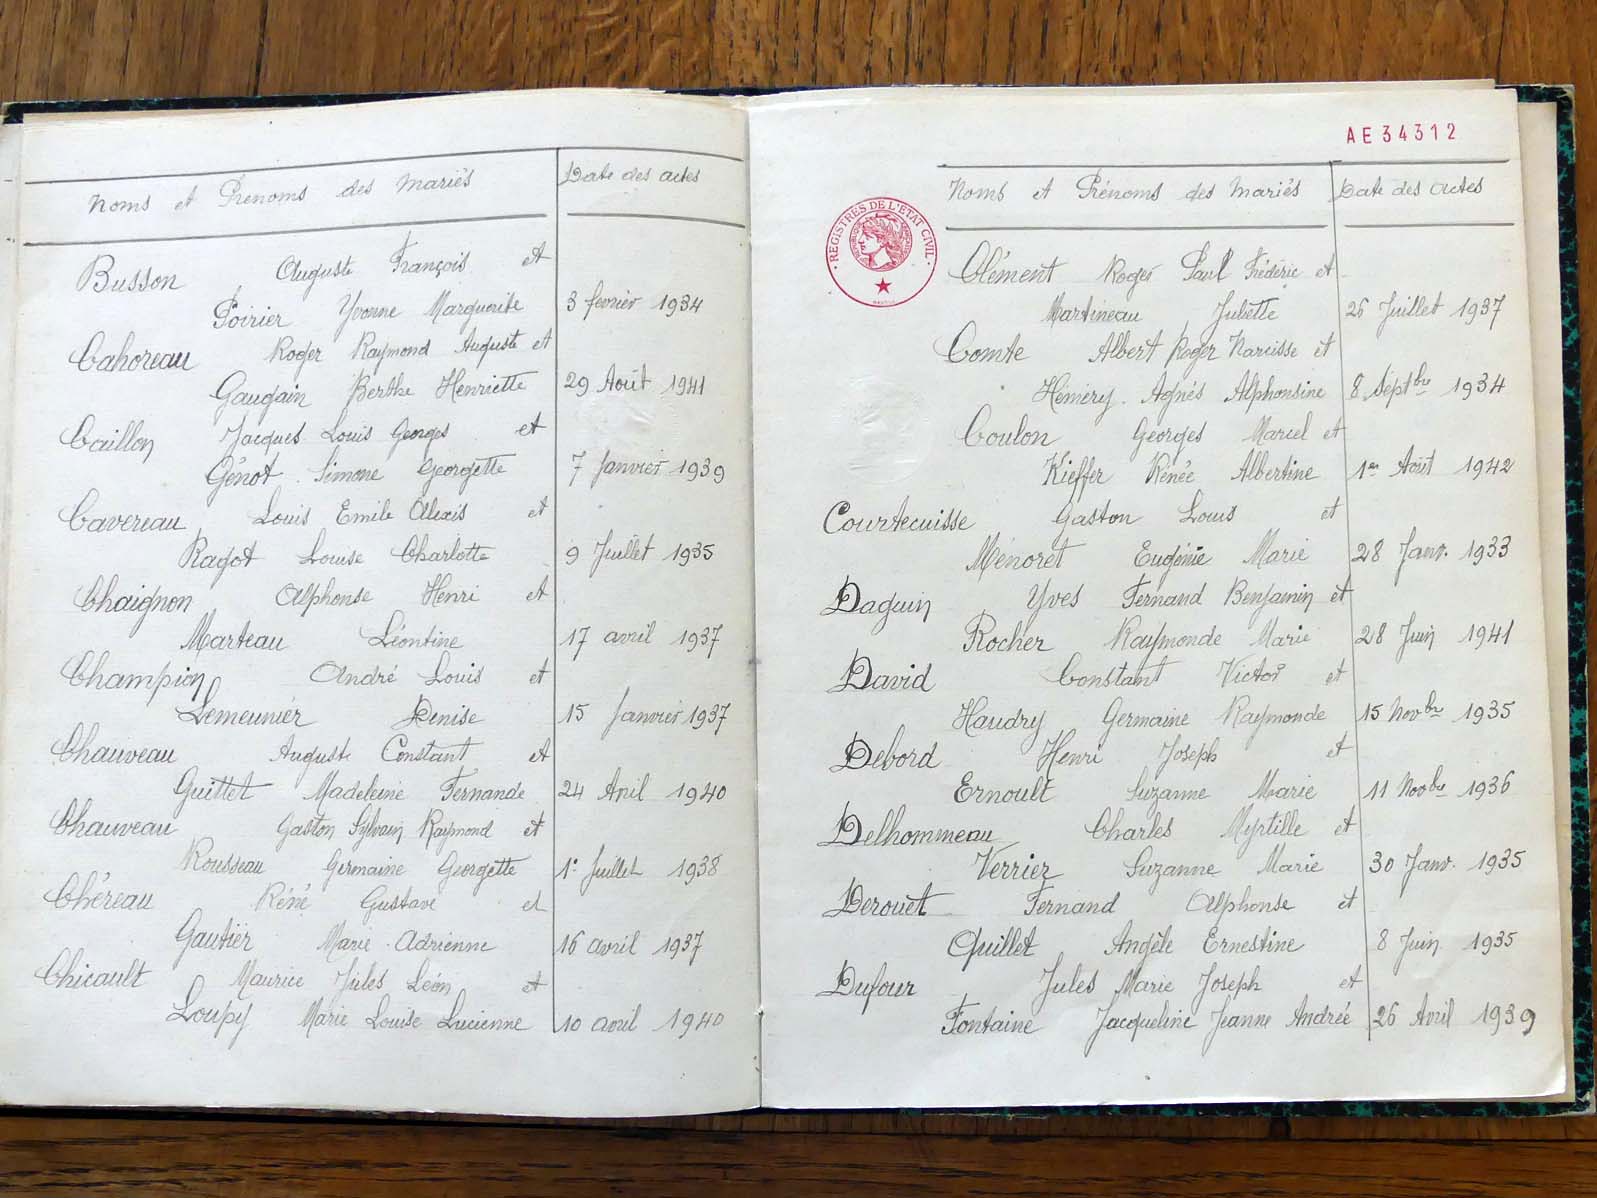 Noms et Prénoms des Mariés Date des actes
Busson Auguste François et
Poirier Yvonne Marguerite 3 fevrier 1934
Cahoreau Roger Raymond Auguste et
Gaugain Berthe Henriette 29 Août 1941
Caillon Jacques Louis Georges et
Génot Simone Georgette 7 Janvier 1939
Cavereau Louis Emile Alexis et
Ragot Louise Charlotte 9 Juillet 1935
Chaignon Alphonse Henri et
Marteau Léontine 17 avril 1937
Champion André Louis et
Lemeunier Denise 15 Janvier 1937
Chauveau Auguste Constant et
Guittet Madeleine Fernande 24 Avril 1940
Chauveau Gaston Sylvain Raymond et
Rousseau Germaine Georgette 1er Juillet 1938
Chéreau Réné Gustave et
Gautier Marie-Adrienne 16 avril 1937
Chicault Maurice Jules Léon et
Loupy Marie Louise Lucienne 10 avril 1940
AE34312
REGISTRES DE L'ETAT CIVIL
Noms et Prénoms des Mariés Date des actes
Clément Roger Paul Frédéric et
Martineau Juliette 26 Juillet 1937
Comte Albert Roger Narcisse et
Héméry Agnés Alphonsine 8 Septbre 1934
Coulon Georges Marcel et
Kieffer Rénée Albertine 1er Août 1942
Courtecuisse Gaston Louis et
Ménoret Eugénie Marie 28 Janv. 1933
Daguin Yves Fernand Benjamin et
Rocher Raymonde Marie 28 Juin 1941
David Constant Victor et
Haudry Germaine Raymonde 15 Novbre 1935
Debord Henri Joseph et
Ernoult Suzanne Marie 11 Novbre 1936
Delhommeau Charles Myrtille et
Verrier Suzanne Marie 30 Janv. 1935
Derouet Fernand Alphonse et
Quillet Angèle Ernestine 8 Juin 1935
Dufour Jules Marie Joseph et
Fontaine Jacqueline Jeanne Andrée 26 Avril 1939